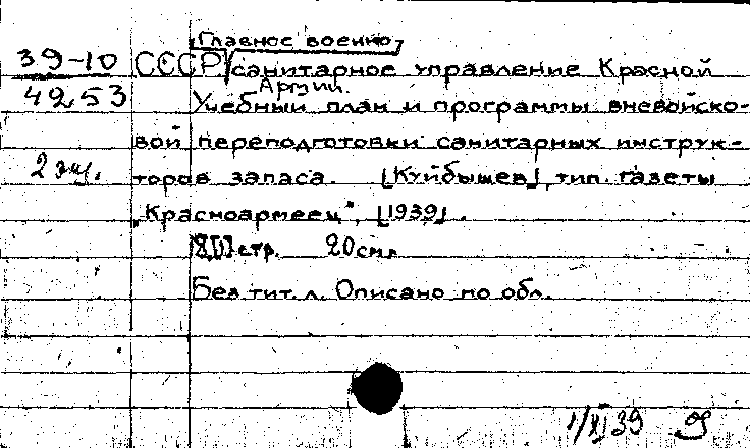 Главное военно
39-10 СССР санитарное управление Красной
Армии.
4253 Учебный план и программы вневойско-
вой переподготовки санитарных инструк-
2 экз. торов запаса. [Куйбышев], тип. газеты
„Красноармеец", [1939].
стр. 20 см
Без тит. л. Описано по обл.
1/XI 39